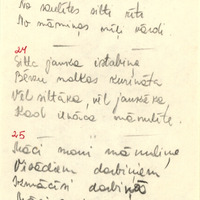 No saulītes silti rīti
No māmiņas mīļi vārdi.
24
Silta jauka istabiņa
Bērzu malkas kurināta
Vēl siltāka, vēl jaukāka,
Kad ienāca māmulīte.
25
Māci mani māmuliņa
Visādiem darbiņiem
Iemācīsi darbiņā